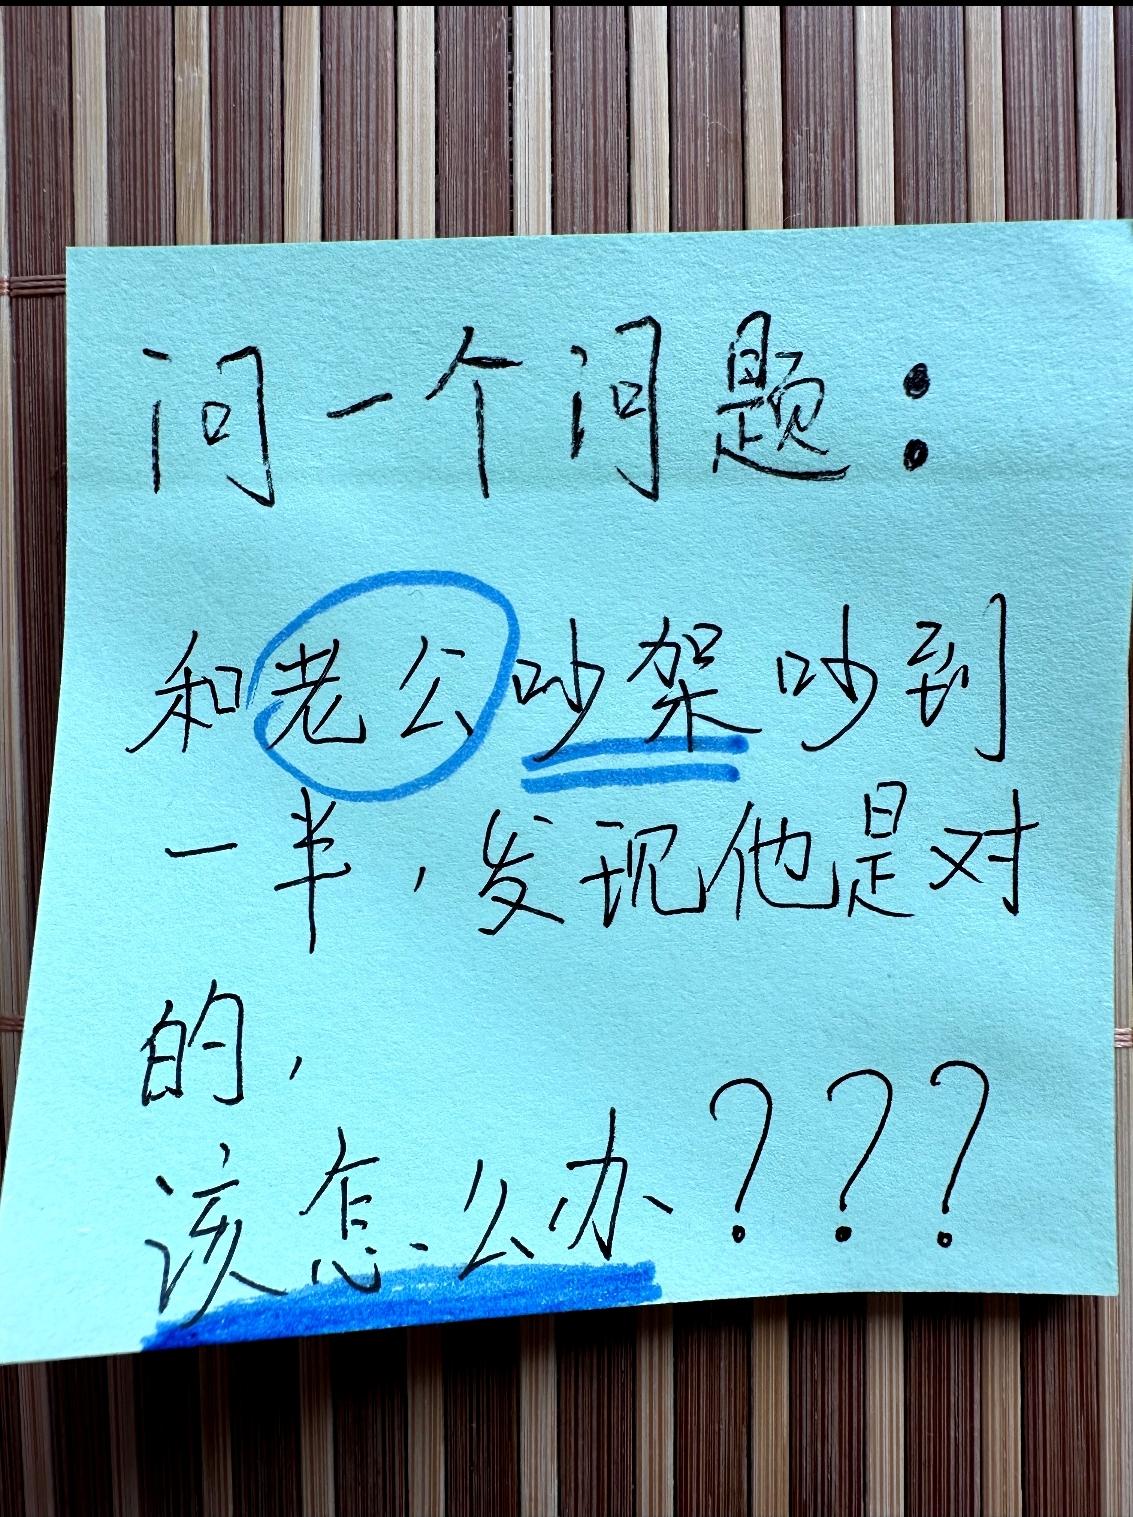 问一个问题：
和老公吵架吵到
一半，发现他是对
的，
该怎么办？？？